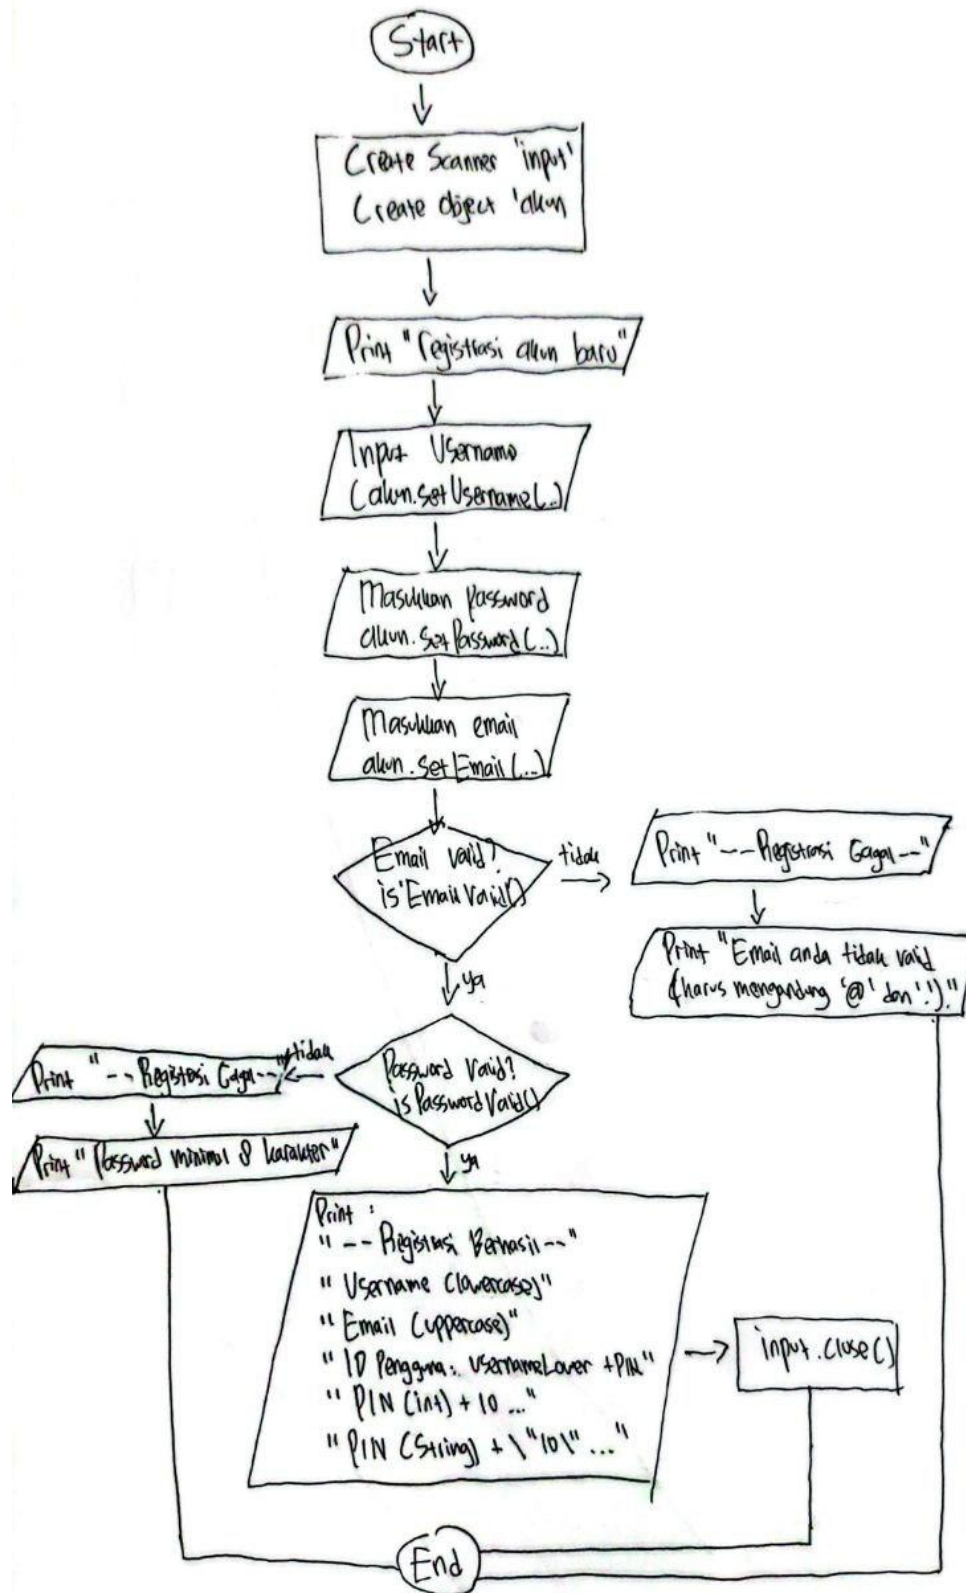 Start
Create Scanner 'input'
Create object 'akun
Print "registrasi akun baru"
Input Username
(akun.setUsername(..)
Masukkan password
akun.setPassword(..)
Masukkan email
akun.setEmail(...)
Email valid?
is'EmailValid'()
tidak
Print "--Registrasi Gagal--"
Print "Email anda tidak valid
(harus mengandung '@' dan '.')."
ya
Password valid?
isPasswordValid()
tidak
Print "-- Registrasi Gagal--"
Print "Password minimal 8 karakter"
ya
Print :
"-- Registrasi Berhasil--"
"Username (lowercase)"
"Email (uppercase)"
"ID Pengguna: usernameLower + PIN"
"PIN (int) + 10 ..."
"PIN (String) + \"10\" ..."
input.close()
End